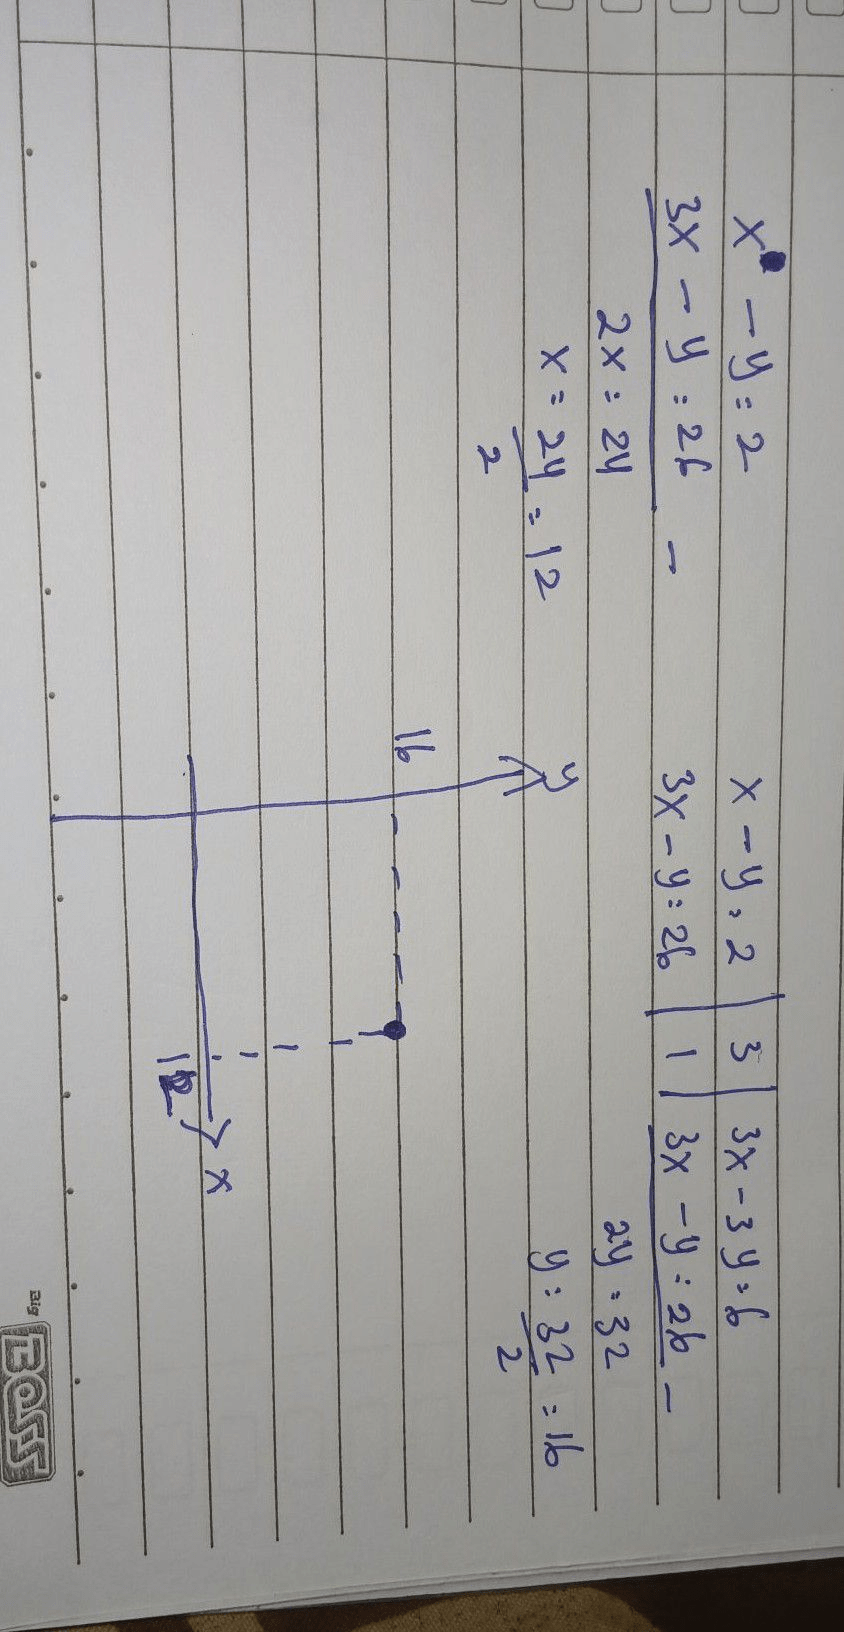 x - y = 2
3x - y = 26 -
2x = 24
x = 24/2 = 12
x - y = 2 | 3 | 3x - 3y = 6
3x - y = 26 | 1 | 3x - y = 26 -
2y = 32
y = 32/2 = 16
y
16
12
x
Big
BOSS